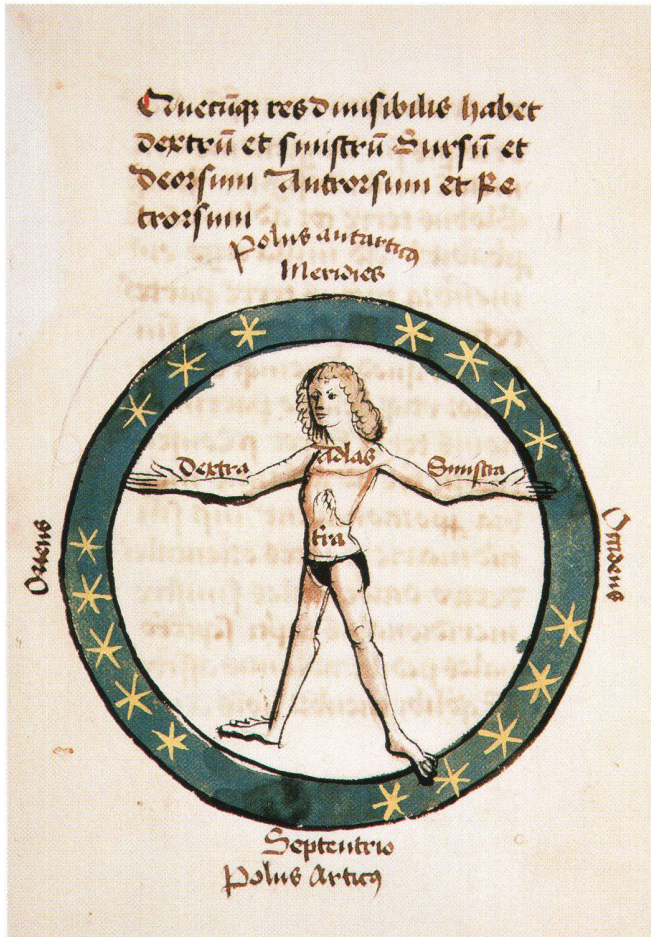 Quecūqȝ res diuisibilis habet
dextrū et sinistrū Sursū et
deorsum Antrorsum et Re
trorsum
Polus antarticꝯ
Meridies
Dextra adlas Sinistra
tr̄a
Oriens
Occidens
Septentrio
Polus Articꝯ